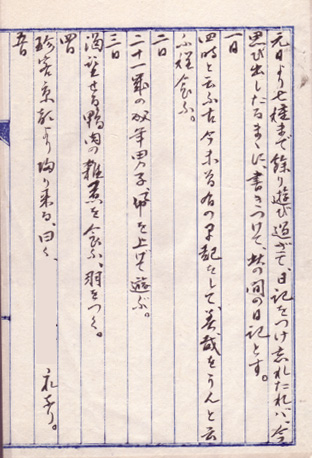 元日より七種まで餘り遊び過ぎて、日記をつけ忘れたれバ、今
思び出したるまゝに書きつけて、此の間の日記とす。
一日
四時と云ふ古今未曾有の早起をして、美哉をうんと云
ふ程食ふ。
二日
二十一歳の双年男子、凧を上げて遊ぶ。
三日
渇望せる鴨肉の雜煮を食ふ、羽をつく。
四日
珍客京都より歸り来る、曰く、 礼チり。
五日